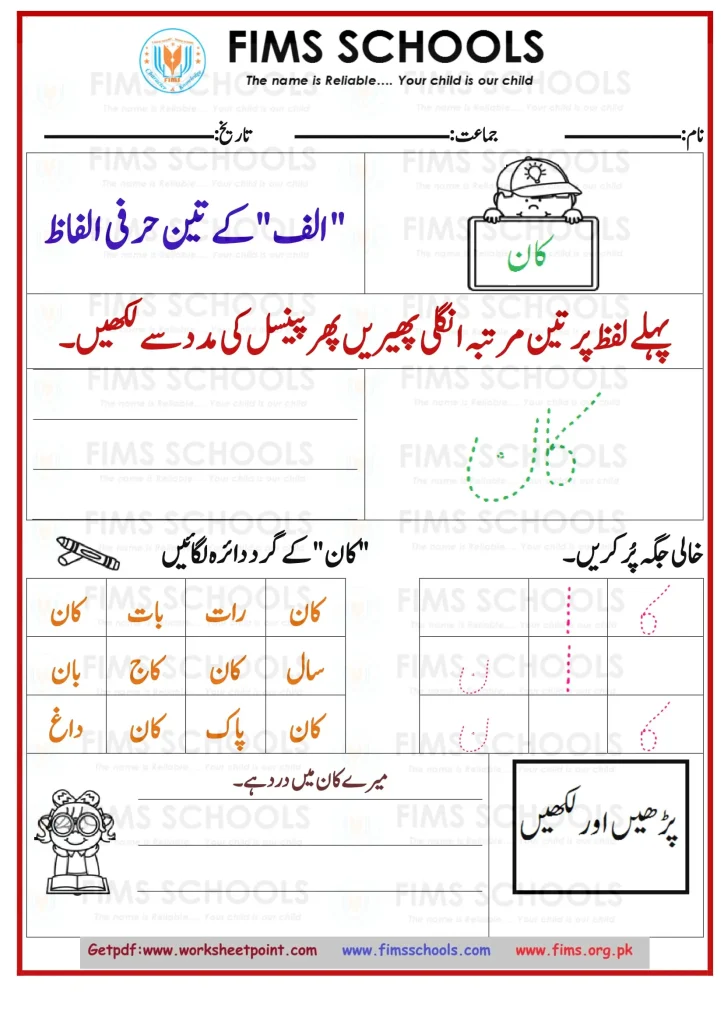 FIMS SCHOOLS
The name is Reliable.... Your child is our child
نام: جماعت: تاریخ:
کان
"الف" کے تین حرفی الفاظ
پہلے لفظ پر تین مرتبہ انگلی پھیریں پھر پینسل کی مدد سے لکھیں۔
کان
خالی جگہ پُر کریں۔
"کان" کے گرد دائرہ لگائیں
ک ا
ا ن
ک ن
کان رات بات کان
سال کان کاج بان
کان پاک کان داغ
پڑھیں اور لکھیں
میرے کان میں درد ہے۔
Getpdf:www.worksheetpoint.com www.fimsschools.com www.fims.org.pk